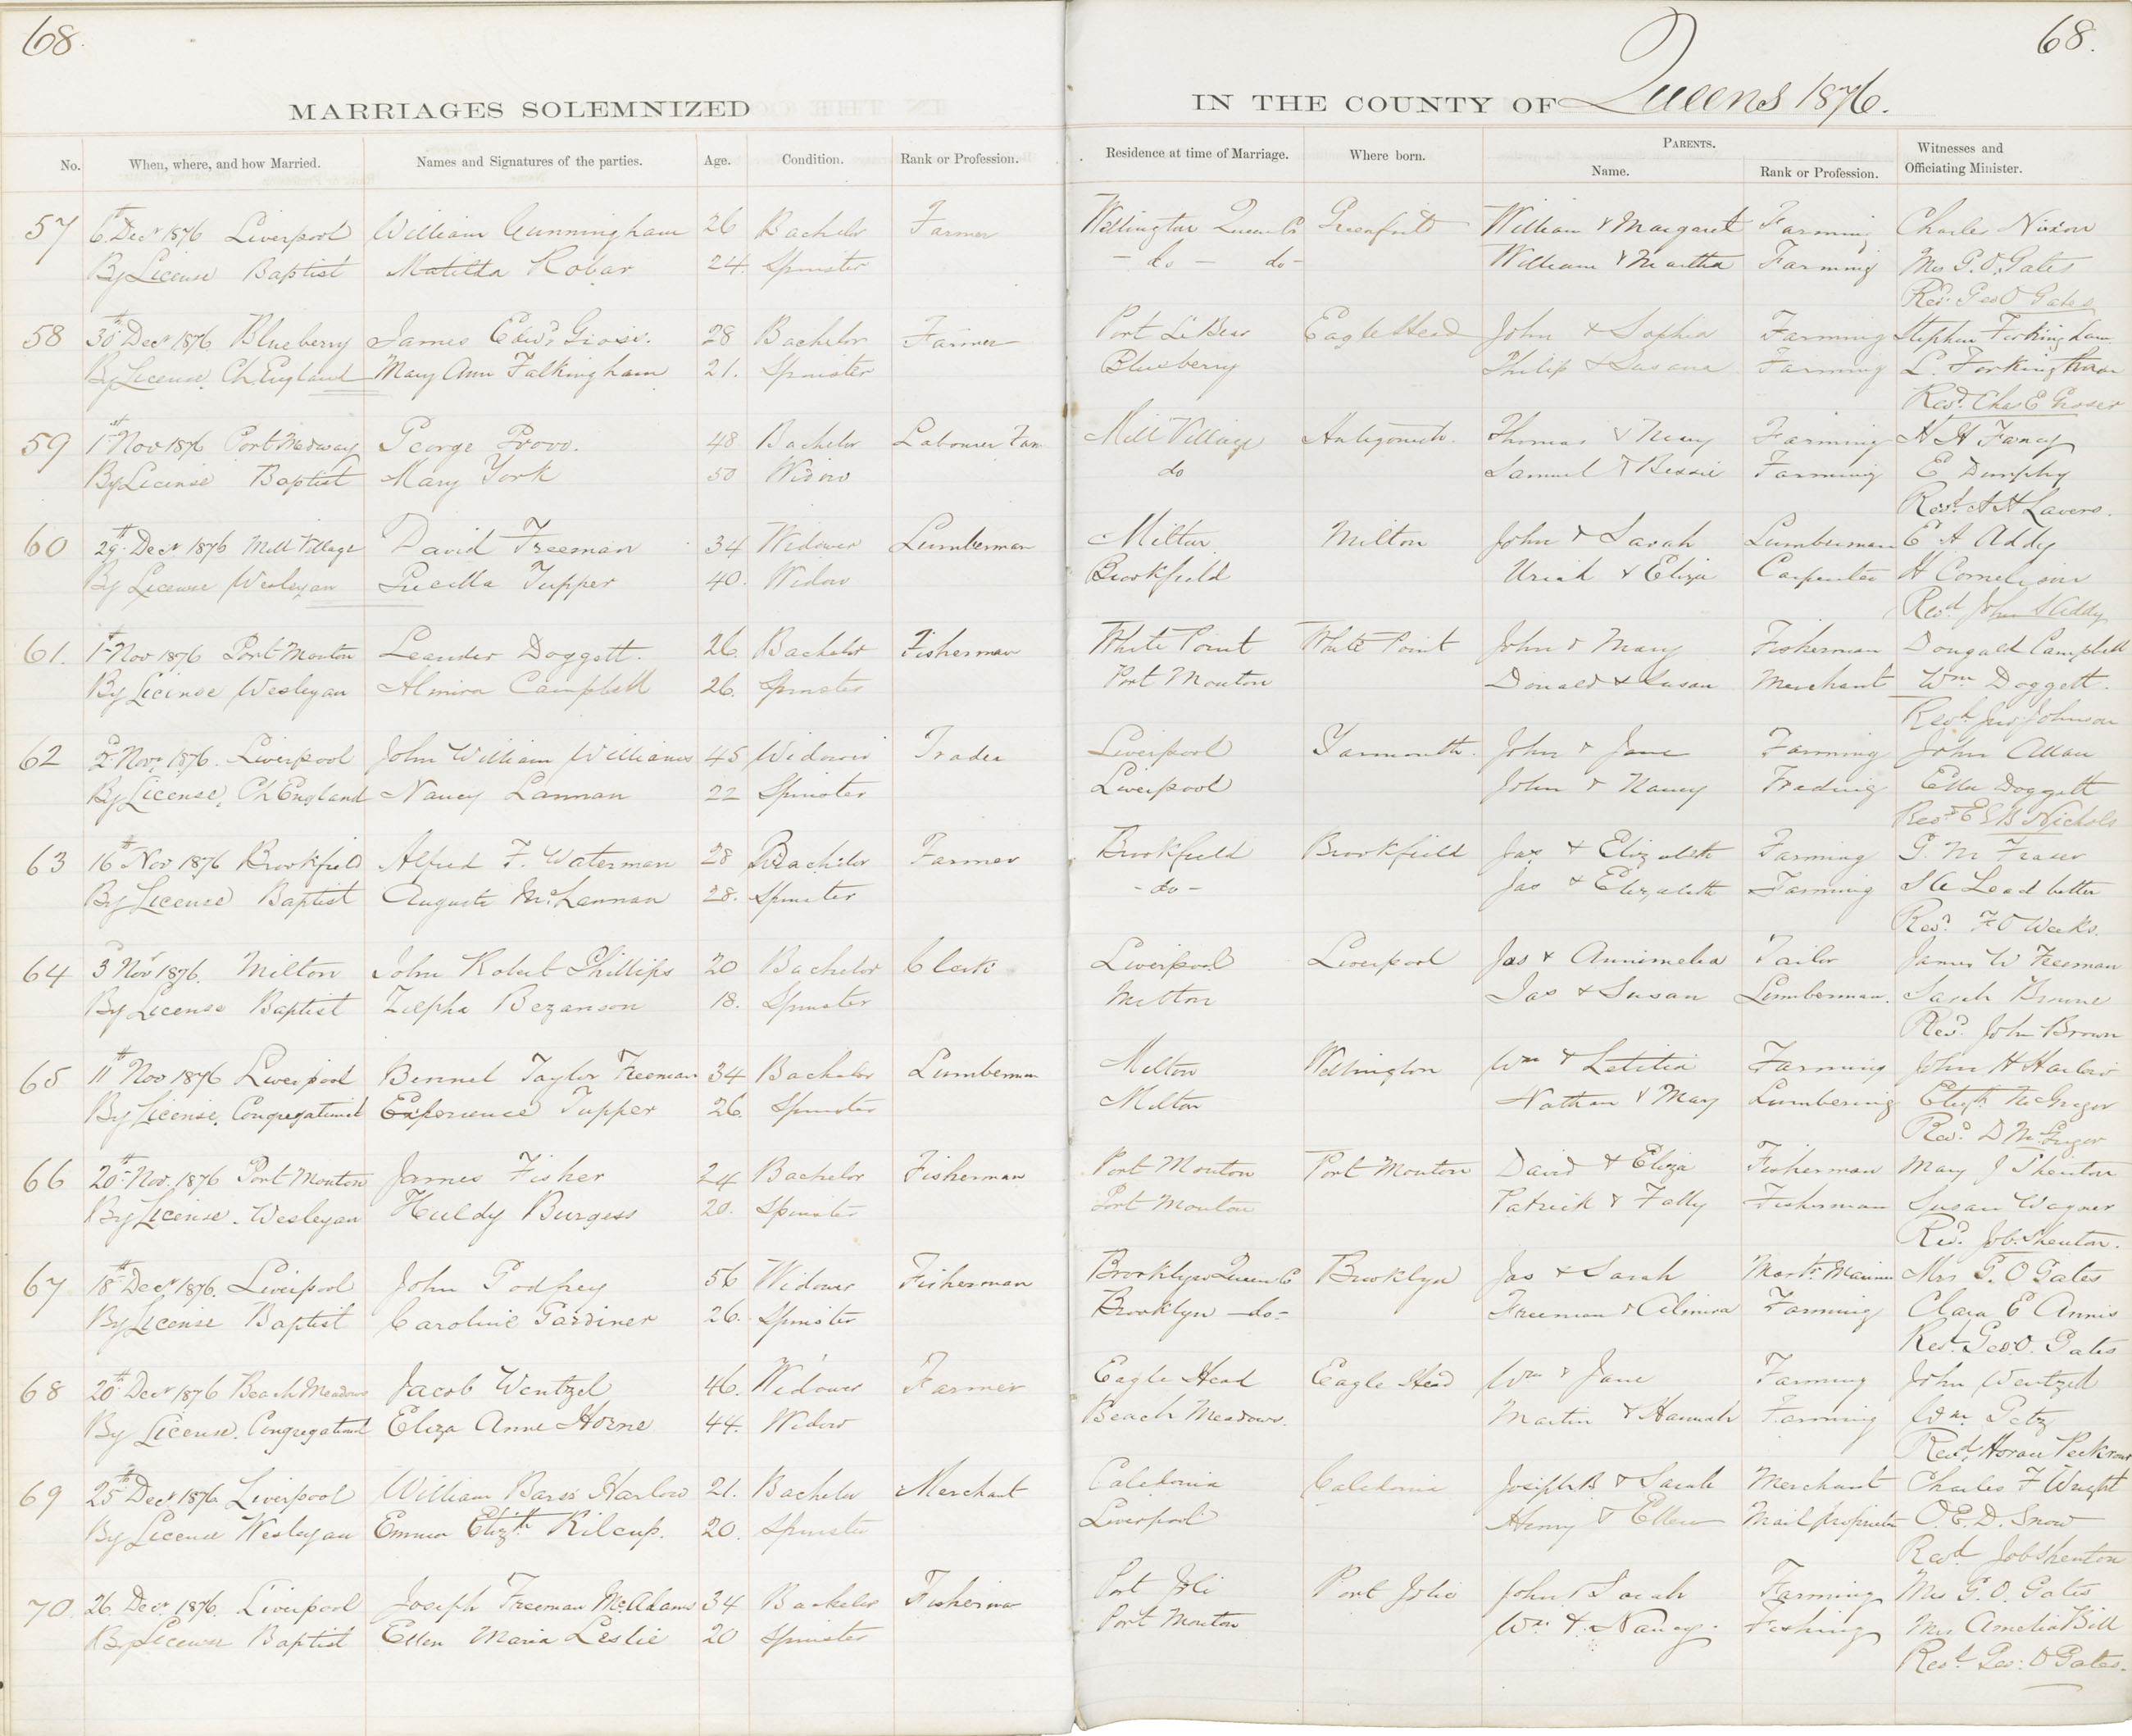 68.
68.
MARRIAGES SOLEMNIZED
IN THE COUNTY OF Queens 1876.
No. When, where, and how Married. Names and Signatures of the parties. Age. Condition. Rank or Profession. Residence at time of Marriage. Where born. PARENTS. Witnesses and
Name. Rank or Profession. Officiating Minister.
57 6th Decr 1876 Liverpool William Cunningham 26 Bachelor Farmer Wellington Queens Co William & Margaret Farming Charles Nixon
By License Baptist Matilda Robar 24. Spinster - do - do - William & Martha Farming Mrs G. O. Gates
Revd. Geo O Gates
58 30th Decr 1876 Blueberry James Edwd 28 Bachelor Farmer Port Eagle Head John & Sophia Farming Stephen
By License. Ch England Mary Ann Falkingham 21. Spinster Blueberry Philip & Susana Farming L.
Revd. Chas E Groser
59 1st Nov 1876 Port Medway George Provo. 48 Bachelor Labourer Mill Village Antigonish. Thomas & Mary Farming H H Fancy
By License Baptist Mary York 50 Widow do Samuel & Bessie Farming E Dunphy
Revd. A H Lavers.
60 29th Decr 1876 Mill Village David Freeman 34 Widower Lumberman Milton Milton John & Sarah Lumberman E A Addy
By License Wesleyan Tupper 40. Widow Brookfield Uriah & Eliza Carpenter H
Revd John S Addy
61. 1st Nov 1876 Port Mouton Leander Doggett. 26. Bachelor Fisherman White Point White Point John & Mary Fisherman Dougald Campbell
By License Wesleyan Almira Campbell 26. Spinster Port Mouton Donald & Susan Merchant Wm Doggett.
Revd. Johnson
62 2d Novr 1876. Liverpool John William Williams 45 Widower Trader Liverpool Yarmouth. John & Jane Farming John Allan
By License. Ch England Nancy Lannan 22 Spinster Liverpool John & Nancy Trading Ella Doggett
Revd E E B Nichols
63 16th Nov 1876 Brookfield Alfred F. Waterman 28 Bachelor Farmer Brookfield Brookfield Jas & Elizabeth Farming Fraser
By License Baptist Augusta McLennan 28. Spinster - do - Jas & Elizabeth Farming Leadbetter
Revd. F O Weeks.
64 3d Novr 1876. Milton John Robert Phillips 20 Bachelor Clerk Liverpool Liverpool Jas & Tailor James W Freeman
By License Baptist Zilpha Bezanson 18. Spinster Milton Jas & Susan Lumberman. Sarah Browne
Revd. John Brown
65 11th Nov 1876 Liverpool Taylor Freeman 34 Bachelor Lumberman Milton Wellington Wm & Letitia Farming John H Harlow
By License. Congregationist Experience Tupper 26. Spinster Milton Nathan & May Lumbering McGregor
Revd. D McGregor
66 20th Nov. 1876 Port Mouton James Fisher 24 Bachelor Fisherman Port Mouton Port Mouton David & Eliza Fisherman Mary J Shenton
By License. Wesleyan Huldy Burgess 20. Spinster Port Mouton Patrick & Fisherman Susan Wagner
Revd. Job Shenton.
67 18th Decr 1876. Liverpool John Godfrey 56 Widower Fisherman Brooklyn Queens Co Brooklyn Jas & Sarah Mastr Mariner Mrs G. O Gates
By License Baptist Caroline Gardiner 26. Spinster Brooklyn - do - Freeman & Almira Farming Clara E Annis
Revd. Geo. O. Gates
68 20th Decr 1876 Beach Meadows Jacob Wentzel 46. Widower Farmer Eagle Head Eagle Head Wm & Jane Farming John Wentzell
By License. Congregationist Eliza Anne Horne 44. Widow Beach Meadows. Martin & Hannah Farming Wm.
Revd. Horace Peckover
69 25th Decr 1876 Liverpool William Barss Harlow 21. Bachelor Merchant Caledonia Caledonia Joseph B & Sarah Merchant Charles F Wright
By License Wesleyan Emma Elizth Kilcup. 20. Spinster Liverpool Henry & Ellen Mail proprietor O. E. D. Snow
Revd Job Shenton
70 26 Decr 1876. Liverpool Joseph Freeman McAdams 34 Bachelor Fisherman Port Joli Port Jolie John & Sarah Farming Mrs G. O. Gates
By License Baptist Ellen Maria Leslie 20 Spinster Port Mouton Wm. & Nancy. Fishing Mrs Amelia Bill
Revd. Geo: O Gates.